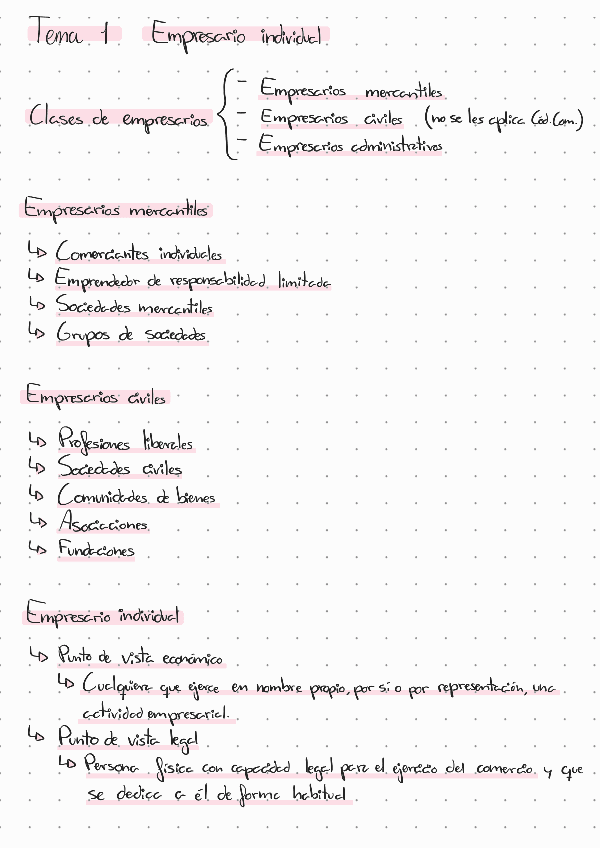 Tema 1 Empresario individual
- Empresarios mercantiles
Clases de empresarios - Empresarios civiles (no se les aplica Cód. Com.)
- Empresarios administrativos
Empresarios mercantiles
↳ Comerciantes individuales
↳ Emprendedor de responsabilidad limitada
↳ Sociedades mercantiles
↳ Grupos de sociedades
Empresarios civiles
↳ Profesiones liberales
↳ Sociedades civiles
↳ Comunidades de bienes
↳ Asociaciones
↳ Fundaciones
Empresario individual
↳ Punto de vista económico
↳ Cualquiera que ejerce en nombre propio, por sí o por representación, una
actividad empresarial.
↳ Punto de vista legal
↳ Persona física con capacidad legal para el ejercicio del comercio y que
se dedica a él de forma habitual.